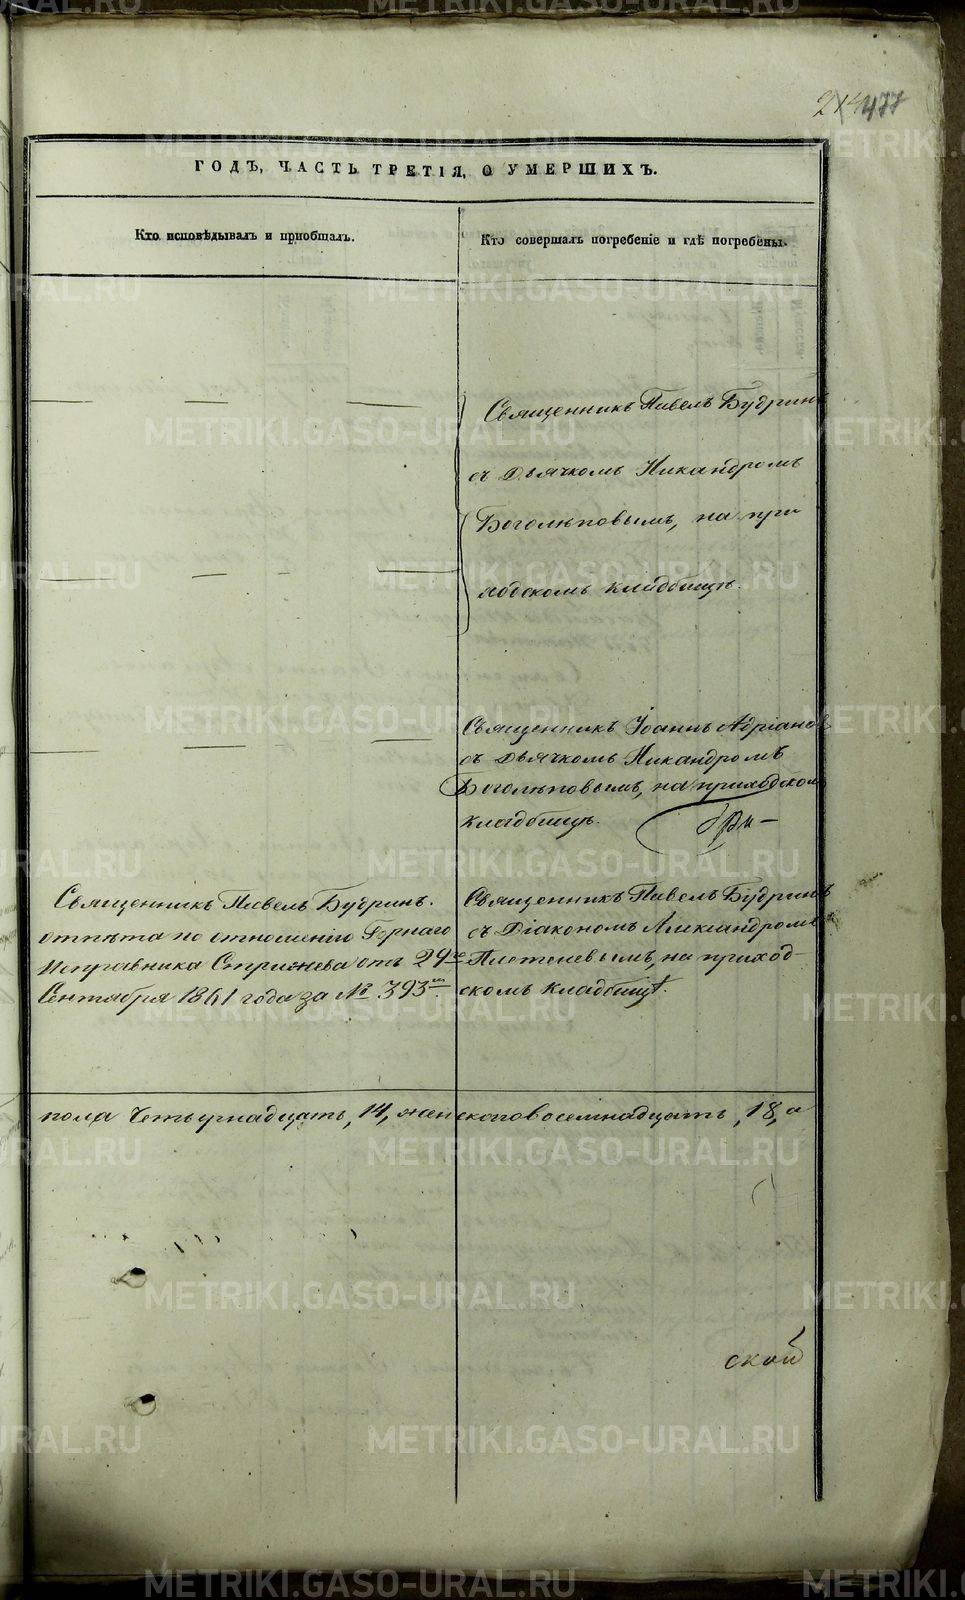 477
ГОДЪ, ЧАСТЬ ТРЕТІЯ, О УМЕРШИХЪ.
Кто исповѣдывалъ и пріобщалъ.
Кто совершалъ погребеніе и гдѣ погребены.
Священникъ Павелъ Будринъ
съ Дьячкомъ Никандромъ
Боголѣповымъ, на при
ходскомъ кладбищѣ.
Священникъ Іоаннъ Адріановъ
съ Дьячкомъ Никандромъ
Боголѣповымъ, на приходскомъ
кладбищѣ.
Священникъ Павелъ Будринъ.
отпѣта по отношенію Горнаго
Исправника Стрижева отъ 29го
Сентября 1861 года за № 393мъ.
Священникъ Павелъ Будринъ
съ Діакономъ Александромъ
на приход-
скомъ кладбищѣ.
пола четырнадцать, 14, женскаго восемнадцать, 18, а
ской
METRIKI.GASO-URAL.RU